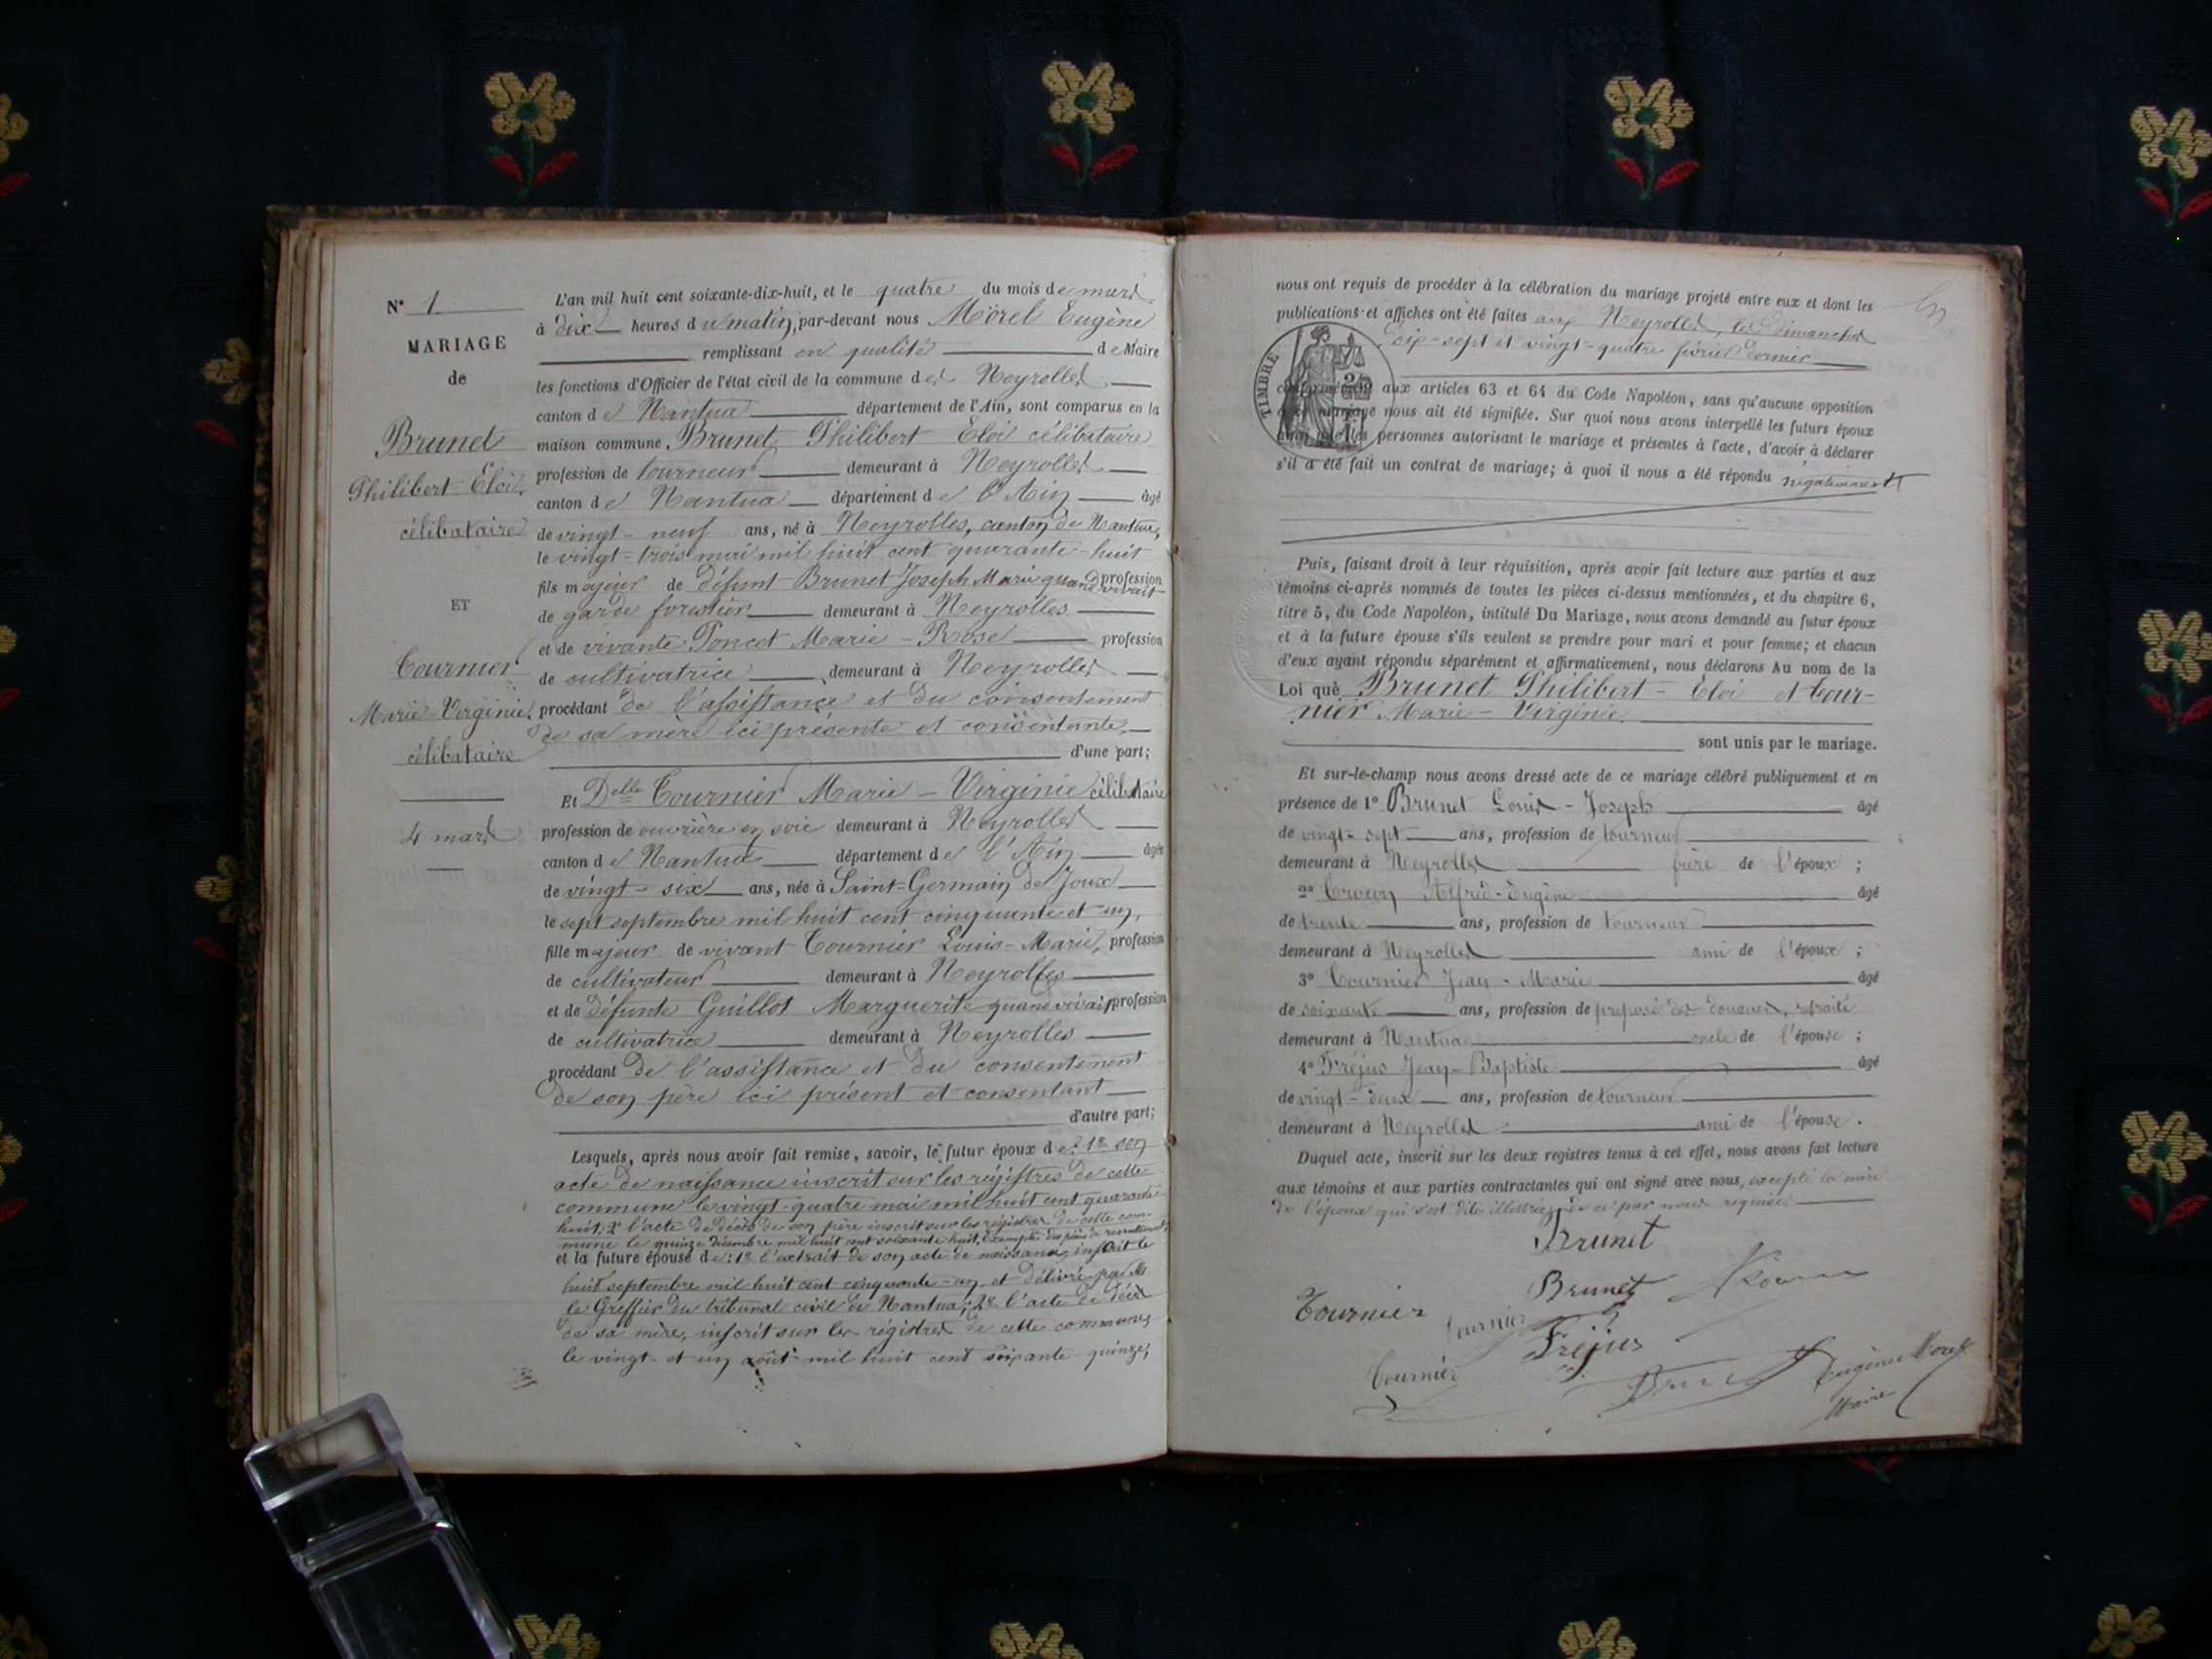 N° 1
MARIAGE
de
Brunet
Philibert-Eloi,
célibataire
ET
Tournier
Marie-Virginie,
célibataire
4 mars
L'an mil huit cent soixante-dix-huit, et le quatre du mois de mars
à dix heures du matin, par-devant nous Morel Eugène
remplissant en qualité de Maire
les fonctions d'Officier de l'état civil de la commune des Neyrolles
canton de Nantua département de l'Ain, sont comparus en la
maison commune, Brunet Philibert Eloi célibataire
profession de tourneur demeurant à Neyrolles
canton de Nantua département de l'Ain âgé
de vingt-neuf ans, né à Neyrolles, canton de Nantua,
le vingt-trois mai mil huit cent quarante-huit
fils majeur de défunt Brunet Joseph Marie quand vivait profession
de garde forestier demeurant à Neyrolles
et de vivante Poncet Marie-Rose profession
de cultivatrice demeurant à Neyrolles
procédant de l'assistance et du consentement
de sa mère ici présente et consentante,
d'une part;
Et Delle Tournier Marie-Virginie célibataire
profession de ouvrière en soie demeurant à Neyrolles
canton de Nantua département de l'Ain âgée
de vingt-six ans, née à Saint-Germain de Joux
le sept septembre mil huit cent cinquante et un,
fille majeur de vivant Tournier Louis-Marie, profession
de cultivateur demeurant à Neyrolles
et de défunte Guillot Marguerite quand vivait profession
de cultivatrice demeurant à Neyrolles
procédant de l'assistance et du consentement
de son père ici présent et consentant
d'autre part;
Lesquels, après nous avoir fait remise, savoir, le futur époux de: 1° son
acte de naissance inscrit sur les régistres de cette
commune le vingt-quatre mai mil huit cent quarante
huit; 2° l'acte de décès de son père inscrit sur les régistres de cette com-
mune le quinze décembre mil huit cent soixante huit,
et la future épouse de: 1° l'extrait de son acte de naissance, inscrit le
huit septembre mil huit cent cinquante-un, et délivré par Mr
le Greffier du tribunal civil de Nantua; 2° l'acte de décès
de sa mère, inscrit sur les régistres de cette commune,
le vingt-et un août mil huit cent soixante-quinze,
nous ont requis de procéder à la célébration du mariage projeté entre eux et dont les
publications et affiches ont été faites aux Neyrolles, les dimanches
dix-sept et vingt-quatre février dernier
TIMBRE
conformément aux articles 63 et 64 du Code Napoléon, sans qu'aucune opposition
audit mariage nous ait été signifiée. Sur quoi nous avons interpellé les futurs époux
ainsi que les personnes autorisant le mariage et présentes à l'acte, d'avoir à déclarer
s'il a été fait un contrat de mariage; à quoi il nous a été répondu négativement
Puis, faisant droit à leur réquisition, après avoir fait lecture aux parties et aux
témoins ci-après nommés de toutes les pièces ci-dessus mentionnées, et du chapitre 6,
titre 5, du Code Napoléon, intitulé Du Mariage, nous avons demandé au futur époux
et à la future épouse s'ils veulent se prendre pour mari et pour femme; et chacun
d'eux ayant répondu séparément et affirmativement, nous déclarons Au nom de la
Loi que Brunet Philibert-Eloi et Tour-
nier Marie-Virginie
sont unis par le mariage.
Et sur-le-champ nous avons dressé acte de ce mariage célébré publiquement et en
présence de 1° Brunet Louis-Joseph âgé
de vingt-sept ans, profession de tourneur
demeurant à Neyrolles frère de l'époux;
2° Alfred-Eugène âgé
de trente ans, profession de tourneur
demeurant à Neyrolles ami de l'époux;
3° Tournier Jean-Marie âgé
de soixante ans, profession de préposé des douanes, retraité
demeurant à Nantua oncle de l'épouse;
4° Fréjus Jean-Baptiste âgé
de vingt-deux ans, profession de tourneur
demeurant à Neyrolles ami de l'épouse.
Duquel acte, inscrit sur les deux registres tenus à cet effet, nous avons fait lecture
aux témoins et aux parties contractantes qui ont signé avec nous, excepté la mère
de l'époux qui s'est dite illettrée, de ce par nous requise.
Brunet
Brunet
Tournier
Tournier
Fréjus
Tournier
Eugène Morel
Maire